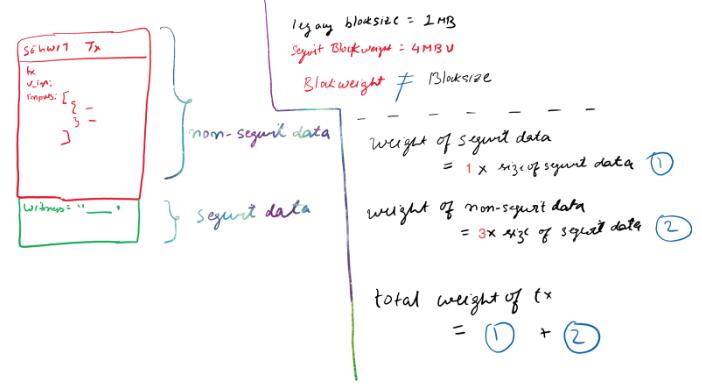 SEGWIT Tx
tx
v_in:
inputs: [
{ -
} -
]
witness: "___"
non-segwit data
segwit data
legacy blocksize = 1MB
Segwit Blockweight = 4MB U
Blockweight ≠ Blocksize
weight of segwit data
= 1 x size of segwit data ①
weight of non-segwit data
= 3x size of segwit data ②
total weight of tx
= ① + ②